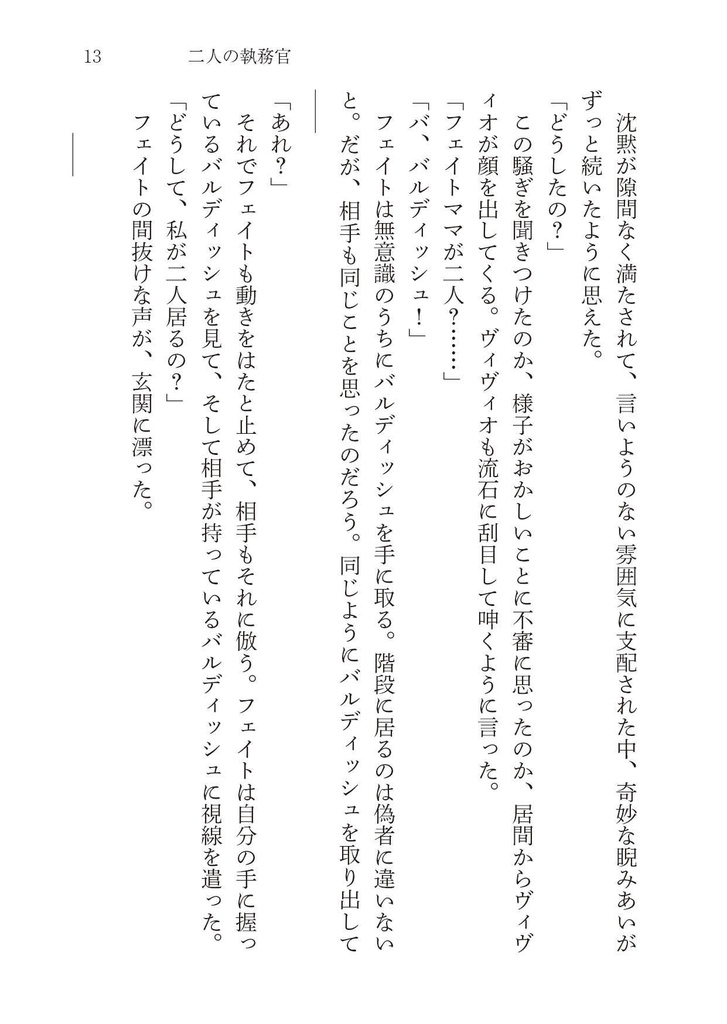 13
二人の執務官
沈黙が隙間なく満たされて、言いようのない雰囲気に支配された中、奇妙な睨みあいが
ずっと続いたように思えた。
「どうしたの？」
この騒ぎを聞きつけたのか、様子がおかしいことに不審に思ったのか、居間からヴィヴ
ィオが顔を出してくる。ヴィヴィオも流石に刮目して呻くように言った。
「フェイトママが二人？……」
「バ、バルディッシュ！」
フェイトは無意識のうちにバルディッシュを手に取る。階段に居るのは偽者に違いない
と。だが、相手も同じことを思ったのだろう。同じようにバルディッシュを取り出して
――
「あれ？」
それでフェイトも動きをはたと止めて、相手もそれに倣う。フェイトは自分の手に握っ
ているバルディッシュを見て、そして相手が持っているバルディッシュに視線を遣った。
「どうして、私が二人居るの？」
フェイトの間抜けな声が、玄関に漂った。
――